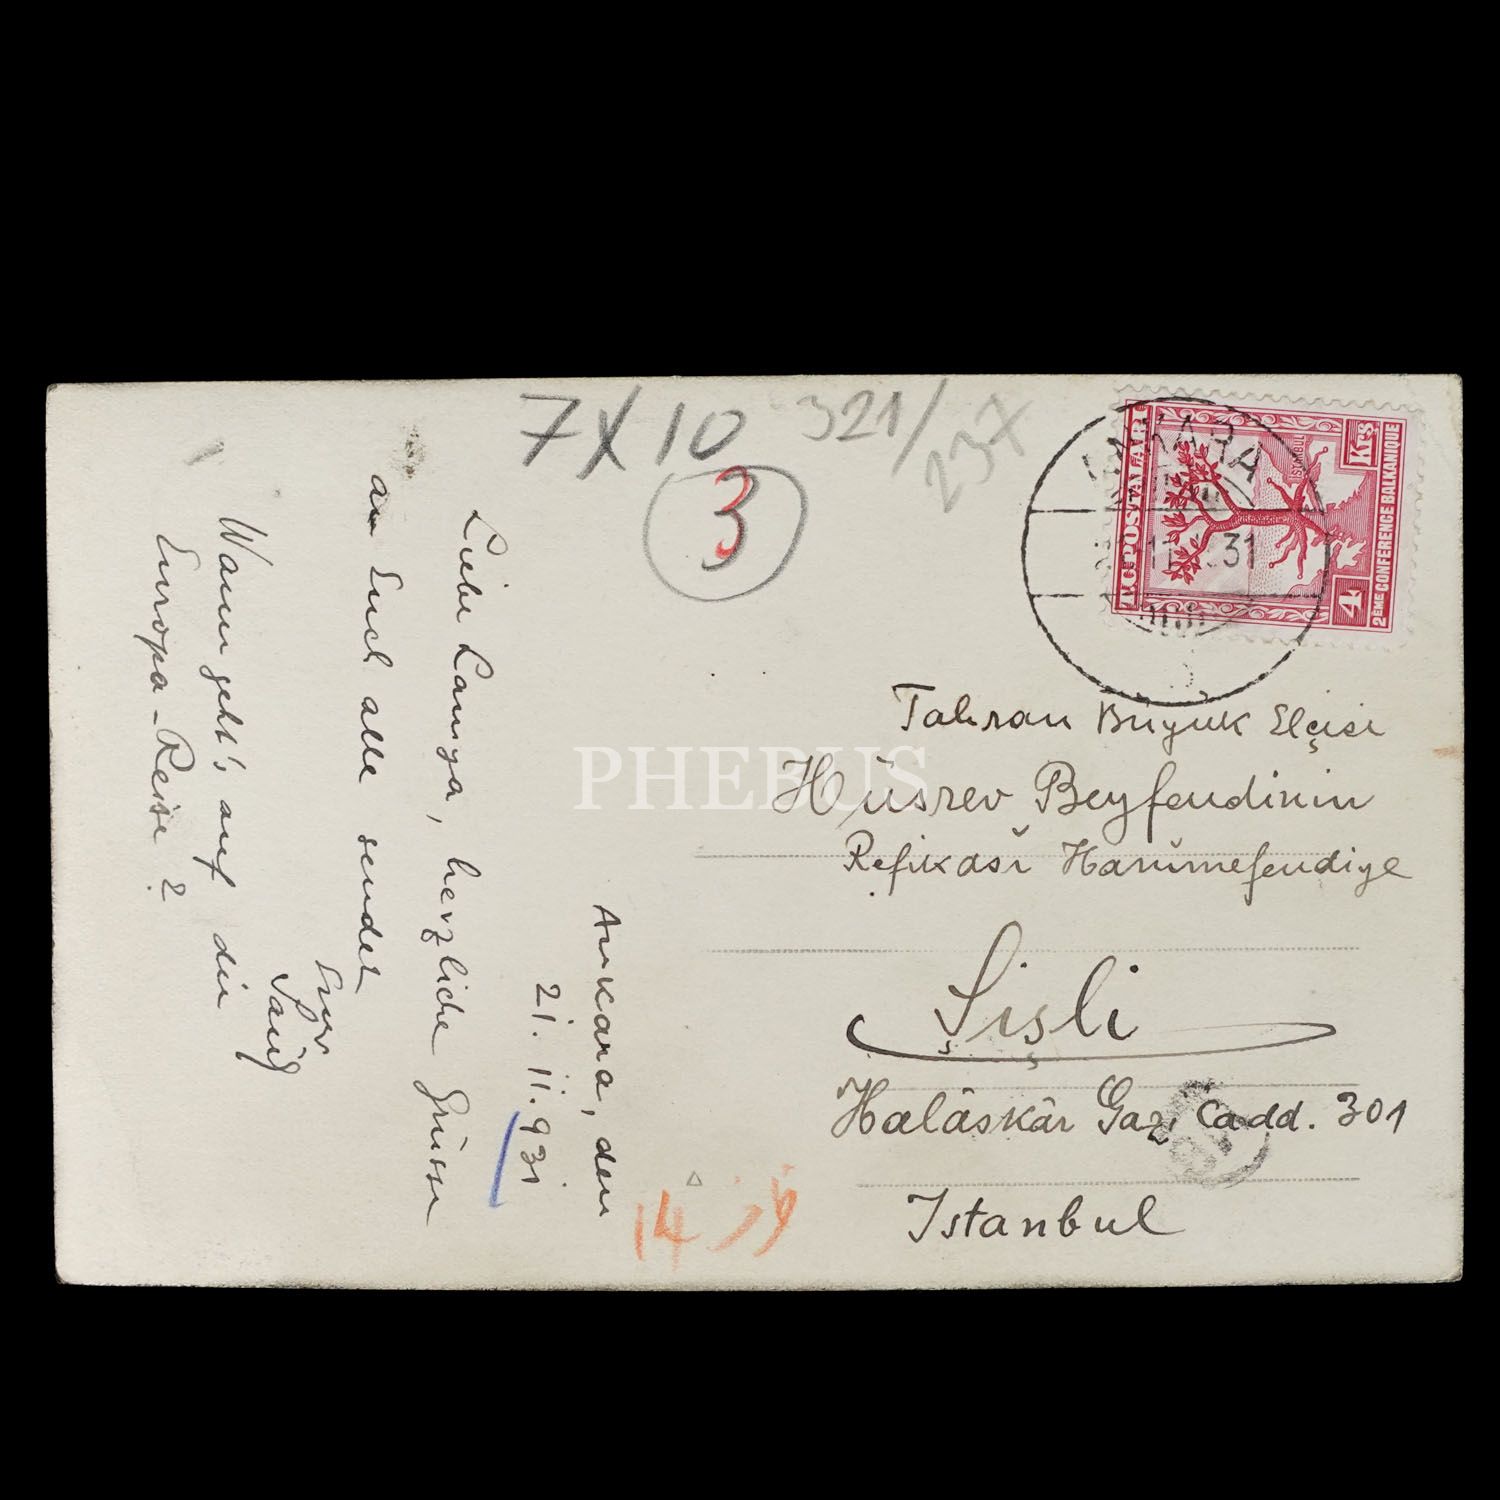 7 X 10
321/
237
3
ANKARA
11 . 31
T.C. POSTALARI
İSTANBUL
4 Krş
2ÈME CONFERENCE BALKANIQUE
Ankara, den
21. 11. 931
Liebe Lamya, herzliche Grüsse
an Euch alle sendet
Euer
Wann geht's auf die
Europa-Reise?
Tahran Büyük Elçisi
Hüsrev Beyfendinin
Refikası Hanımefendiye
Şişli
Halâskâr Gazi Cadd. 301
Istanbul
14
PHEBUS